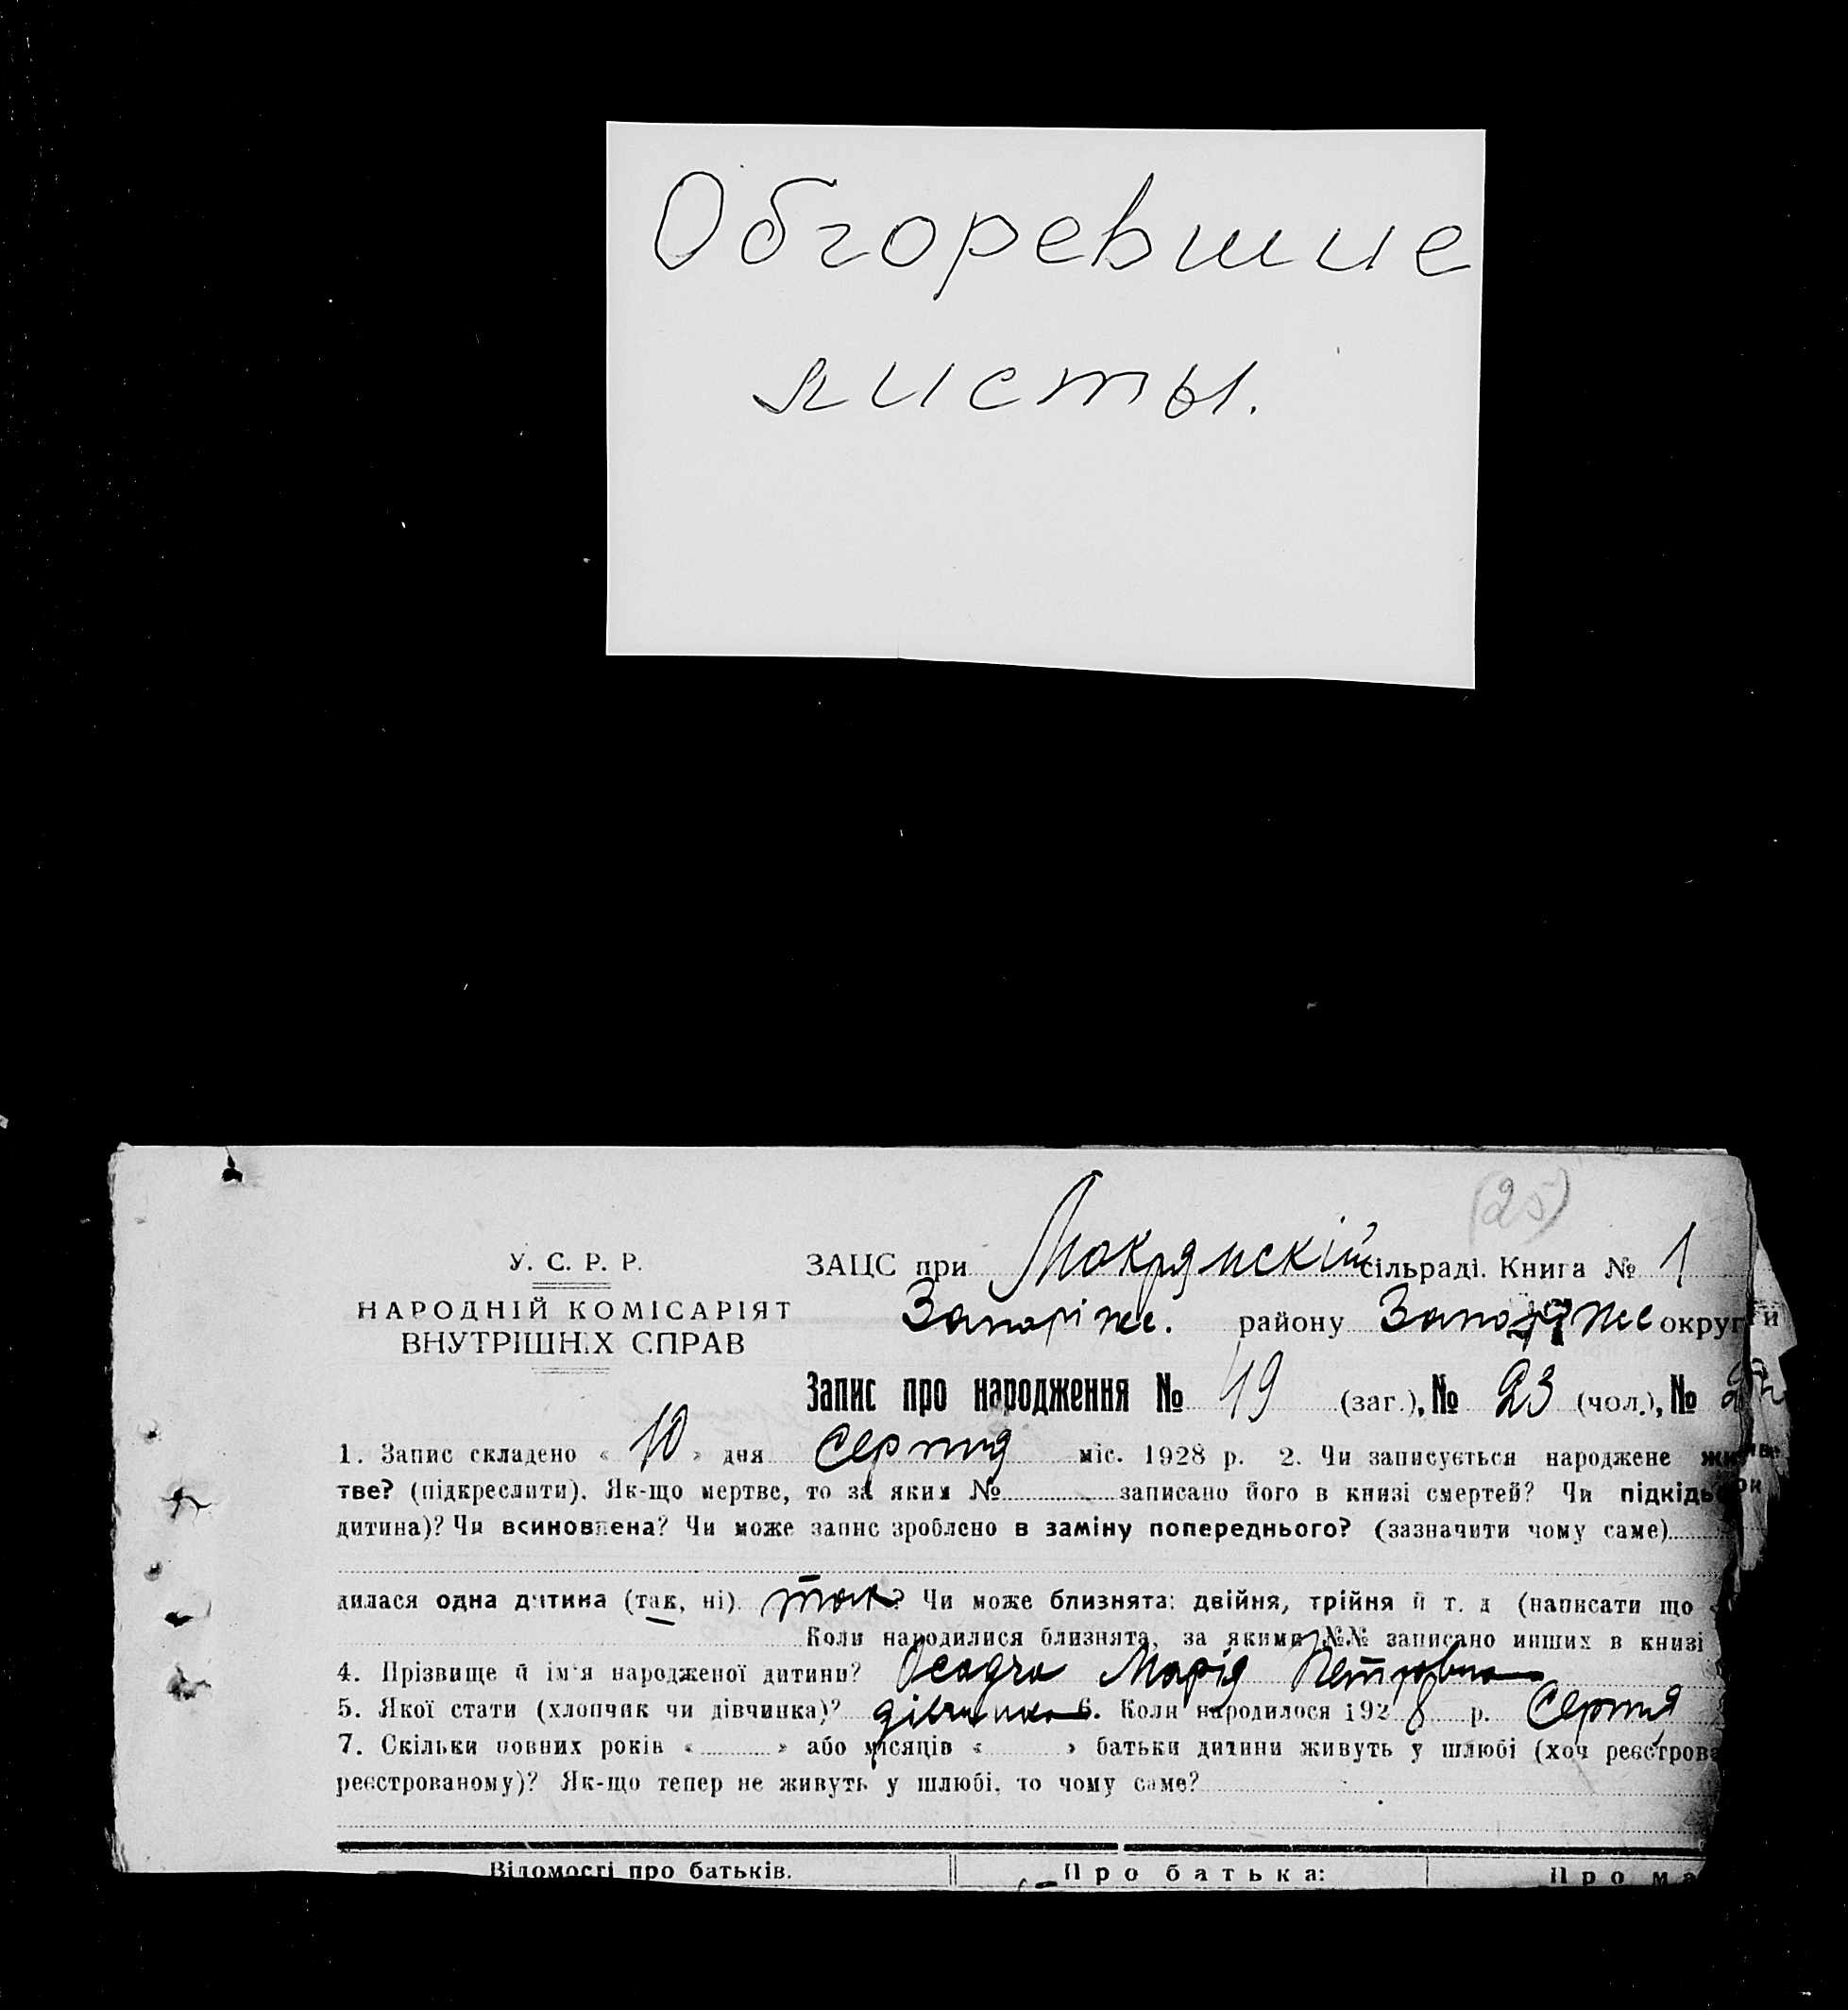 Обгоревшие
листы.
(25)
У. С. Р. Р.
НАРОДНІЙ КОМІСАРІЯТ
ВНУТРІШНІХ СПРАВ
ЗАЦС при Мокрянскій сільраді. Книга № 1
Запоріж. району Запоріж округи
Запис про народження № 49 (заг.), № 23 (чол.), №
1. Запис складено « 10 » дня Серпня міс. 1928 р. 2. Чи записується народжене
тве? (підкреслити). Як-що мертве, то за яким № записано його в книзі смертей? Чи
дитина)? Чи всиновлена? Чи може запис зроблено в заміну попереднього? (зазначити чому саме)
дилася одна дитина (так, ні) так? Чи може близнята: двійня, трійня й т. д (написати що
Коли народилися близнята, за якими №№ записано инших в книзі
4. Прізвище й ім'я народженої дитини? Осадча Марія Петровна
5. Якої стати (хлопчик чи дівчинка)? дівчинка 6. Коли народилося 1928 р. Серпня
7. Скільки повних років « » або місяців « » батьки дитини живуть у шлюбі (хоч реєстрова
реєстрованому)? Як-що тепер не живуть у шлюбі, то чому саме?
Відомості про батьків. Про батька: Про ма